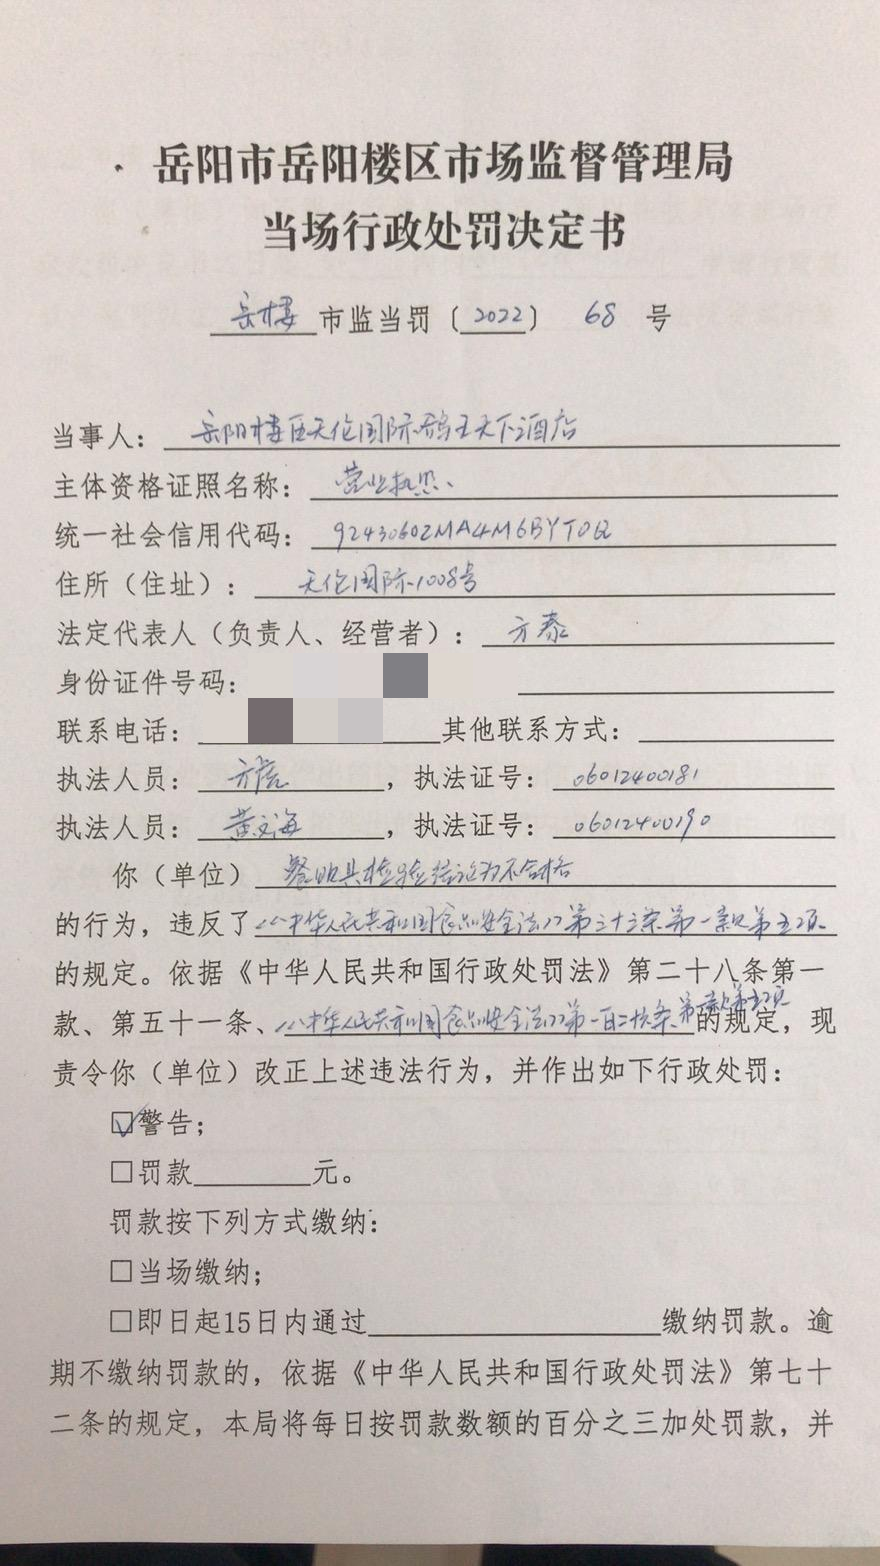 岳阳市岳阳楼区市场监督管理局
当场行政处罚决定书
岳楼市监当罚〔2022〕 68 号
当事人：岳阳楼区天伦国际鸽王天下酒店
主体资格证照名称：营业执照、
统一社会信用代码：92430602MA4M6BYT0Q
住所（住址）：天伦国际1008号
法定代表人（负责人、经营者）：方泰
身份证件号码：
联系电话： 其他联系方式：
执法人员：，执法证号：06012400181
执法人员：黄文海，执法证号：06012400190
你（单位）餐饮具检验结论为不合格
的行为，违反了《中华人民共和国食品安全法》第三十三条第一款第五项
的规定。依据《中华人民共和国行政处罚法》第二十八条第一
款、第五十一条、《中华人民共和国食品安全法》第一百二十六条第一款第五项的规定，现
责令你（单位）改正上述违法行为，并作出如下行政处罚：
☑警告；
□罚款 元。
罚款按下列方式缴纳：
□当场缴纳；
□即日起15日内通过 缴纳罚款。逾
期不缴纳罚款的，依据《中华人民共和国行政处罚法》第七十
二条的规定，本局将每日按罚款数额的百分之三加处罚款，并